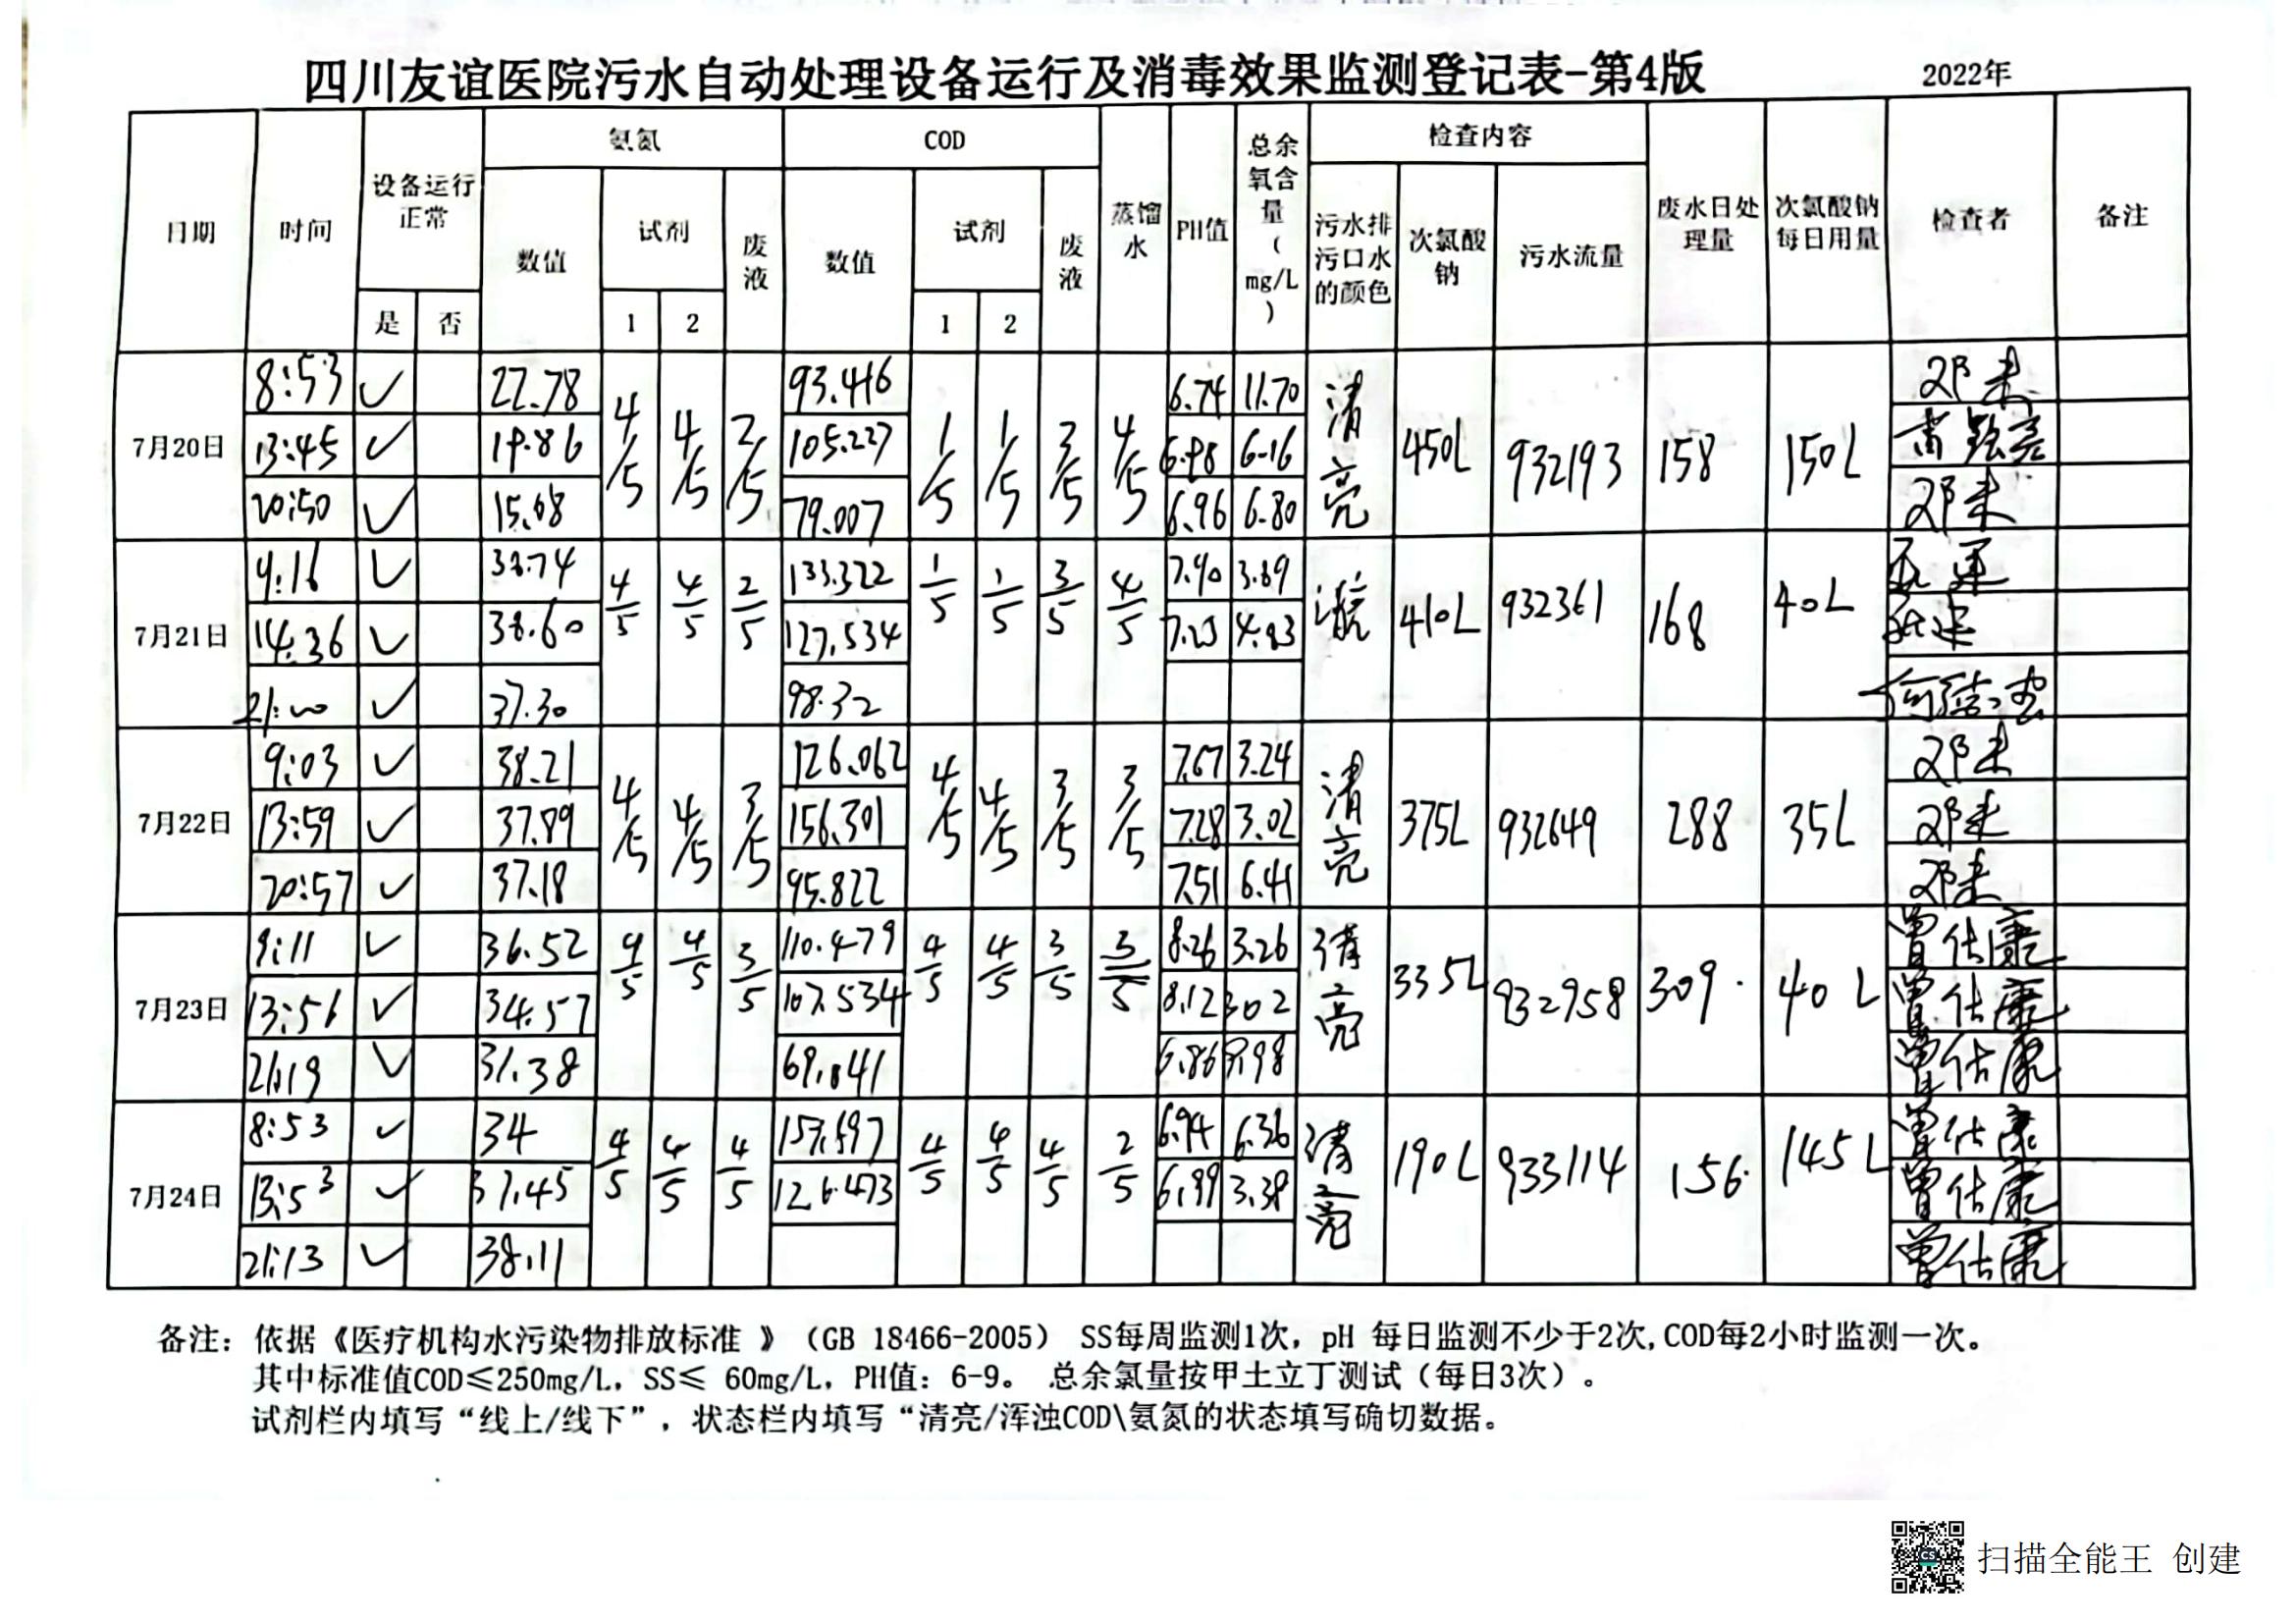 四川友谊医院污水自动处理设备运行及消毒效果监测登记表-第4版 2022年
日期 时间 设备运行正常 是 否 氨氮 数值 试剂 1 2 废液 COD 数值 试剂 1 2 废液 蒸馏水 PH值 总余氧含量(mg/L) 检查内容 污水排污口水的颜色 次氯酸钠 污水流量 废水日处理量 次氯酸钠每日用量 检查者 备注
7月20日 8:53 ✓ 22.78 4/5 4/5 2/5 93.416 1/5 1/5 3/5 4/5 6.74 11.70 清亮 450L 932193 158 150L 邓未
13:45 ✓ 19.86 105.227 6.98 6.16
20:50 ✓ 15.68 79.007 6.96 6.80 邓未
7月21日 9:16 ✓ 38.74 4/5 4/5 2/5 133.322 1/5 1/5 3/5 4/5 7.40 3.89 清亮 410L 932361 168 40L
14:36 ✓ 38.60 127.534 7.23 4.83
21:00 ✓ 37.30 98.32
7月22日 9:03 ✓ 38.21 4/5 4/5 3/5 126.062 4/5 4/5 3/5 3/5 7.67 3.24 清亮 375L 932649 288 35L 邓未
13:59 ✓ 37.89 156.301 7.28 3.02 邓未
20:57 ✓ 37.18 95.822 7.51 6.41 邓未
7月23日 9:11 ✓ 36.52 4/5 4/5 3/5 110.479 4/5 4/5 3/5 3/5 8.26 3.26 清亮 335L 932958 309 40L 曾仕康
13:56 ✓ 34.57 107.534 8.12 3.02 曾仕康
21:19 ✓ 31.38 69.841 6.86 曾仕康
7月24日 8:53 ✓ 34 4/5 4/5 4/5 157.697 4/5 4/5 4/5 2/5 6.94 6.36 清亮 190L 933114 156 145L 曾仕康
13:53 ✓ 37.45 126.473 6.99 3.38 曾仕康
21:13 ✓ 38.11 曾仕康
备注：依据《医疗机构水污染物排放标准 》（GB 18466-2005） SS每周监测1次，pH 每日监测不少于2次,COD每2小时监测一次。
其中标准值COD≤250mg/L，SS≤ 60mg/L，PH值：6-9。 总余氯量按甲土立丁测试（每日3次）。
试剂栏内填写“线上/线下”，状态栏内填写“清亮/浑浊COD\氨氮的状态填写确切数据。
扫描全能王 创建